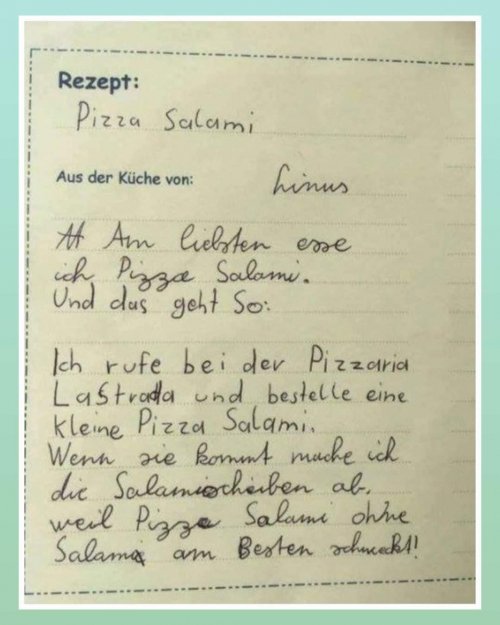 Rezept:
Pizza Salami
Aus der Küche von:
Linus
Am liebsten esse
ich Pizza Salami.
Und das geht So:
Ich rufe bei der Pizzaria
LaStrada und bestelle eine
kleine Pizza Salami.
Wenn sie kommt mache ich
die Salamischeiben ab,
weil Pizza Salami ohne
Salami am Besten schmeckt!